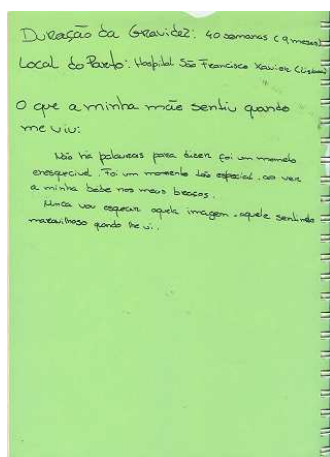 Duração da Gravidez: 40 semanas (9 meses)
Local do Parto: Hospital São Francisco Xavier (Lisboa)
O que a minha mãe sentiu quando
me viu:
Não há palavras para dizer foi um momento
enesquecivel. Foi um momento tão especial, ao ver
a minha bebe nos meus braços.
Nunca vou esquecer aquela imagem, aquele sentindo
maravilhoso quando lhe vi.